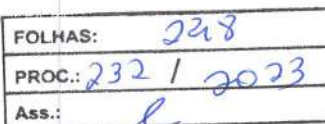 FOLHAS: 248
PROC.: 232 / 2023
Ass.: